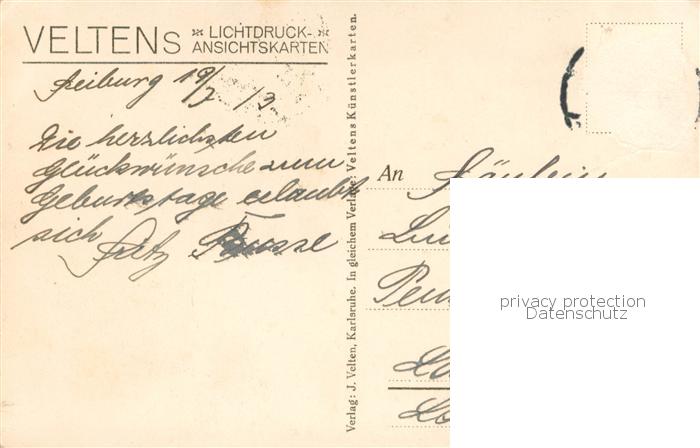 VELTENS LICHTDRUCK-
ANSICHTSKARTEN
Freiburg 19/7 13.
Die herzlichsten
Glückwünsche zum
Geburtstage erlaubt
sich Fritz
Verlag: J. Velten, Karlsruhe. In gleichem Verlage: Veltens Künstlerkarten.
An Fräulein
privacy protection
Datenschutz